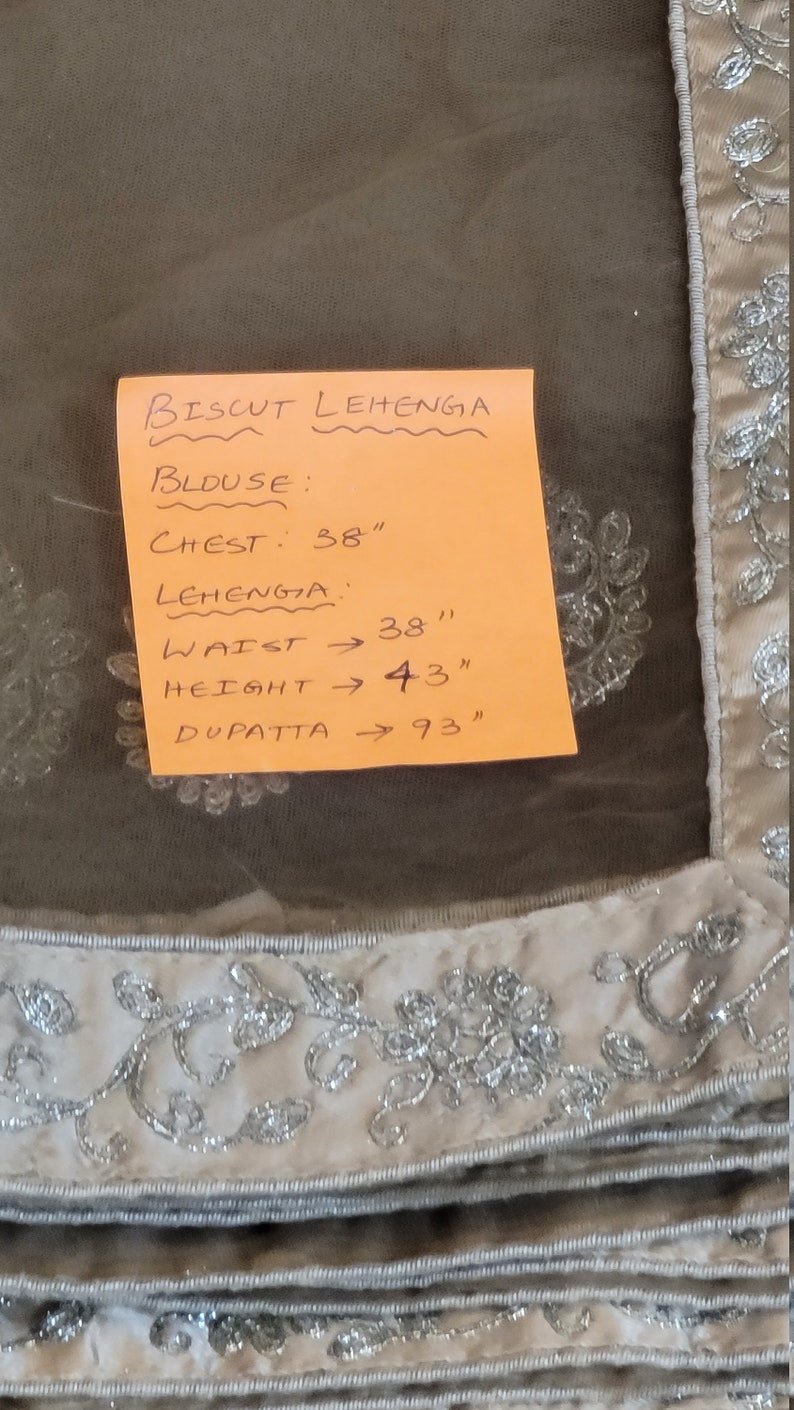 BISCUT LEHENGA
BLOUSE:
CHEST: 38"
LEHENGA:
WAIST → 38"
HEIGHT → 43"
DUPATTA → 93"